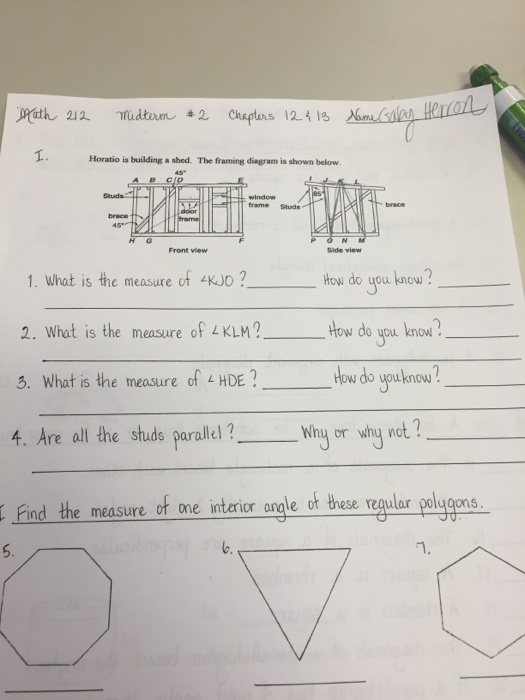 Math 212 Midterm #2 Chapters 12 & 13 Name Gaby Herron
I. Horatio is building a shed. The framing diagram is shown below.
45°
A B C D E I J K L
Studs window frame Studs 85° brace
brace door frame
45°
H G F P O N M
Front view Side view
1. What is the measure of ∠KJO? How do you know?
2. What is the measure of ∠KLM? How do you know?
3. What is the measure of ∠HDE? How do you know?
4. Are all the studs parallel? Why or why not?
I Find the measure of one interior angle of these regular polygons.
5. 6. 7.